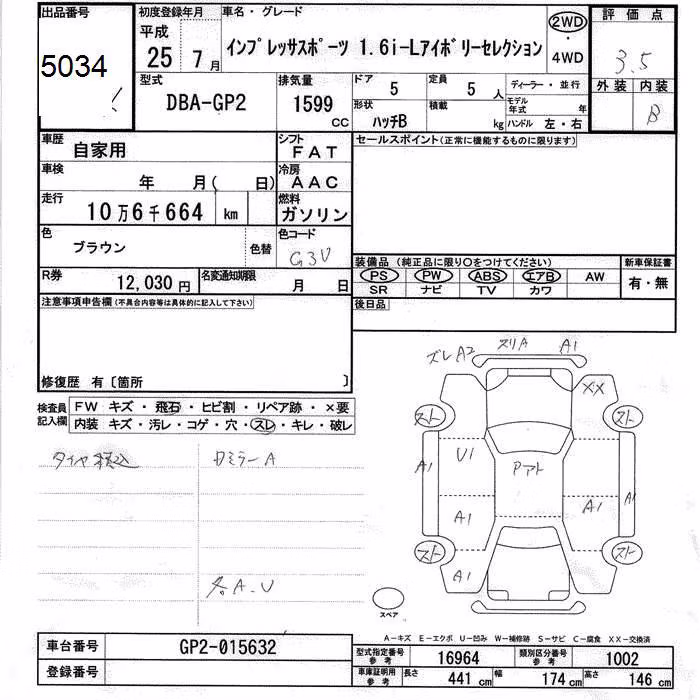 出品番号
5034
!
初度登録年月
平成
25 7 月
車名・グレード
インプレッサスポーツ 1.6i-Lアイボリーセレクション
2WD
・
4WD
評価点
3.5
外装 内装
B
型式
DBA-GP2
排気量
1599
CC
ドア
5
定員
5 人
形状
ハッチB
積載
kg
ディーラー・並行
モデル年式 年
ハンドル 左・右
車歴
自家用
シフト
FAT
車検
年 月( 日)
冷房
AAC
走行
10万6千664 km
燃料
ガソリン
色
ブラウン
色替
色コード
G3U
R券
12,030 円
名変通知期限
月 日
セールスポイント(正常に機能するものに限ります)
装備品(純正品に限り○をつけてください)
新車保証書
PS PW ABS エアB AW
SR ナビ TV カワ
有・無
後日品
注意事項申告欄(不具合内容等は具体的に記入して下さい)
修復歴 有〔箇所 〕
検査員記入欄
FW キズ・飛石・ヒビ割・リペア跡・×要
内装 キズ・汚レ・コゲ・穴・スレ・キレ・破レ
タイヤ積込
ロミラーA
各A.U
ズレA2 スリA A1
XX
スト スト
U1 Pアト
A1 A1 A1
A1
スト スト
A1
スペア
A-キズ E-エクボ U-凹み W-補修跡 S-サビ C-腐食 XX-交換済
車台番号
GP2-015632
登録番号
型式指定番号 参考
16964
類別区分番号 参考
1002
車庫証明用 参考
長さ 441 cm
幅 174 cm
高さ 146 cm